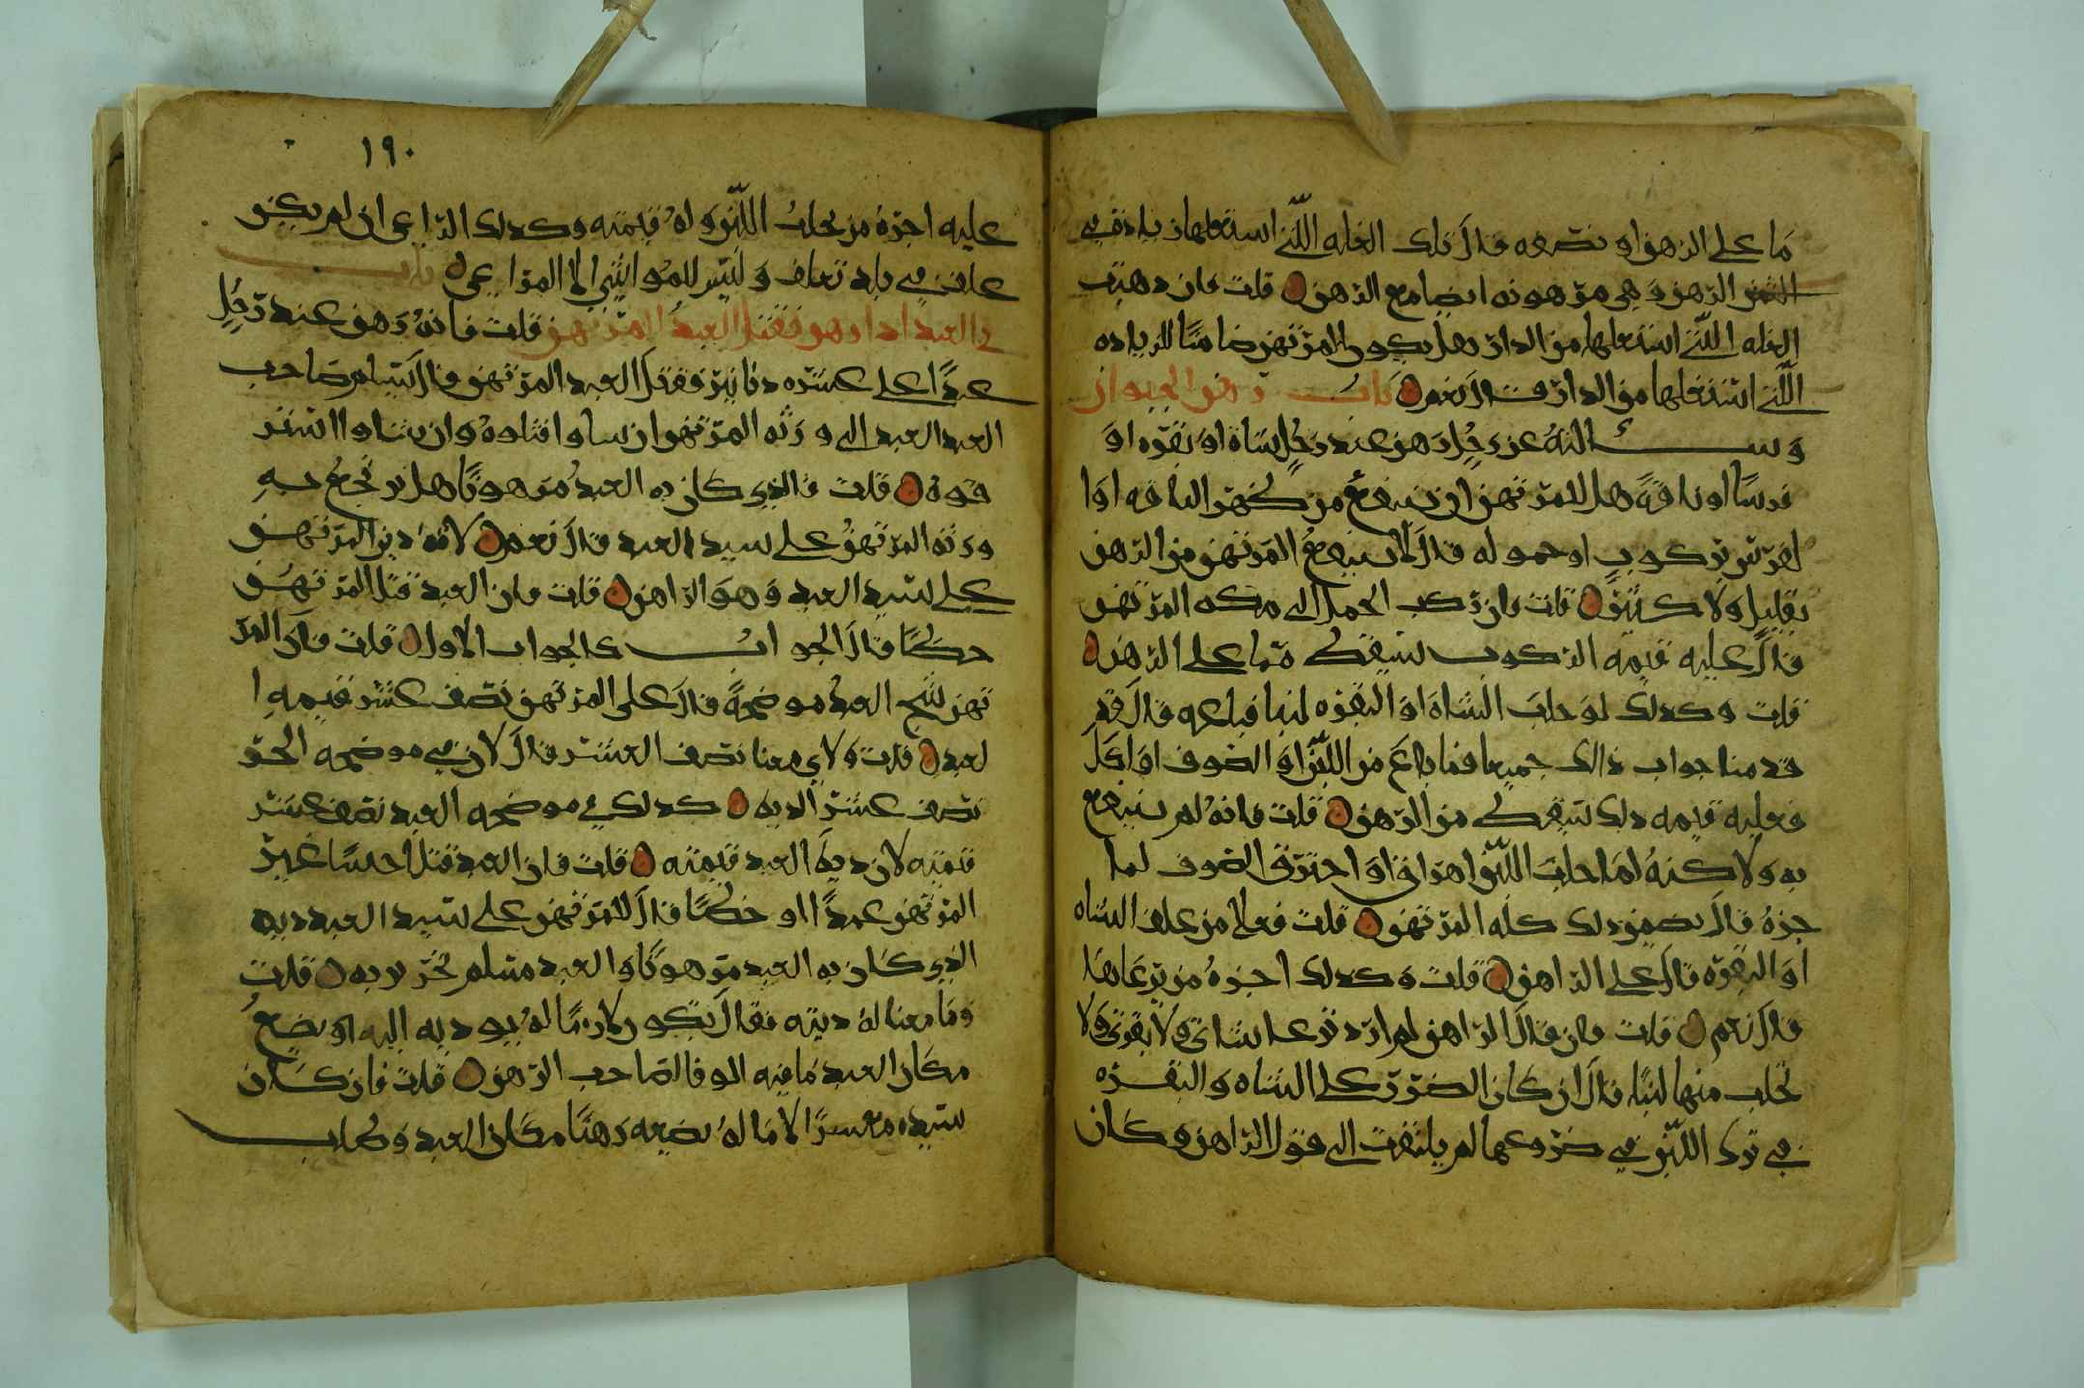 ما على الرهن او نصفه قال تلك الغله اللتي استغلها زياده في
الثمن الرهن وهي مرهونه ايضا مع الرهن قلت فان ذهبت
الغله اللتي استغلها من الدار هل يكون المرتهن ضامنا للزياده
اللتي استغلها من الدار قال نعم باب رهن الحيوان
وسالته عن رجل رهن عند رجل شاة او بقره او
فرسا او ناقة هل للمرتهن ان ينتفع من ظهر الناقه او ا
لفرس بركوب او حموله قال لا ينتفع المرتهن من الرهن
بقليل ولا كثير قلت فان ركب الجمل الى مكه المرتهن
قال عليه قيمه الركوب يسقط مما على الرهن
قلت وكذلك لو حلب الشاة او البقره لبنا فباعه قال قد
قدمنا جواب ذالك جميعا فما باع من اللبن او الصوف او اكل
فعليه قيمه ذلك يسقط من الرهن قلت فانه لم ينتفع
به ولاكنه لما حلب اللبن اهراق او احترق الصوف لما
جزه قال يضمن ذلك كله المرتهن قلت فعلا من علف الشاه
او البقره قال على الراهن قلت وكذلك اجره من يرعاها
قال نعم قلت فان قال الراهن لم ارد ترعا شاتي ولا بقرتي ولا
تحلب منها لبنا قال ان كان الضرر على الشاه والبقره
في ترك اللبن في ضروعهما لم يلتفت الى قول الراهن وكان
١٩٠
عليه اجرة من يحلب اللبن وله قيمته وكذلك الراعي ان لم يكن
علف في بلد تعلف وليس للمواشي الا المراعي باب
في العبد اذا رهن فقتل العبد المرتهن قلت فانه رهن عند رجل
عبدا على عشره دنانير فقتل العبد المرتهن قال يسلم صاحب
العبد العبد الى ورثه المرتهن ان شاوا قتلوه وان شاوا استر
قوه قلت فالذي كان به العبد مرهونا هل يرجع به
ورثه المرتهن على سيد العبد قال نعم لانه دين المرتهن
على سيد العبد وهو الراهن قلت فان العبد قتل المرتهن
خطا قال الجواب كالجواب الاول قلت فان المر
تهن شج العبد موضحة قال على المرتهن نصف عشر قيمه ا
لعبد قلت ولاي معنا نصف العشر قال لان في موضحه الحر
نصف عشر الديه كذلك في موضحه العبد نصف عشر
قيمته لان دية العبد قيمته قلت فان العبد قتل احسا غير
المرتهن عمدا او خطا قال للمرتهن على سيد العبد دينه
الذي كان به العبد مرهونا والعبد مسلم بجريرته قلت
وما معنا له دينه فقال يكون لازما له يودیه اليه او يضع
مكان العبد ما فيه الوفا لصاحب الرهن قلت فان كان
سيده معسرا لا مال له يضعه رهنا مكان العبد وطلب